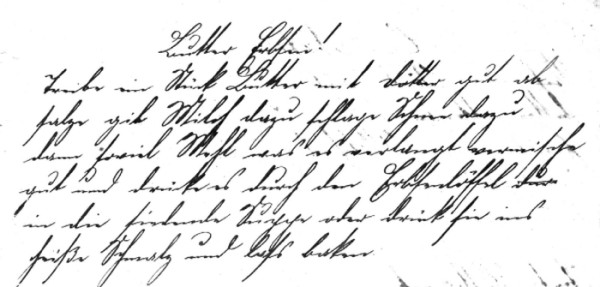 Butter Erbsen!
Treibe ein Stück Butter mit Dotter gut ab
salze gib Milch dazu schlage Schnee dazu
dann soviel Mehl was es verlangt vermische
gut und drücke es durch den Erbsenlöffel
in die siedende Suppe oder drück sie ins
heiße Schmalz und lass baken